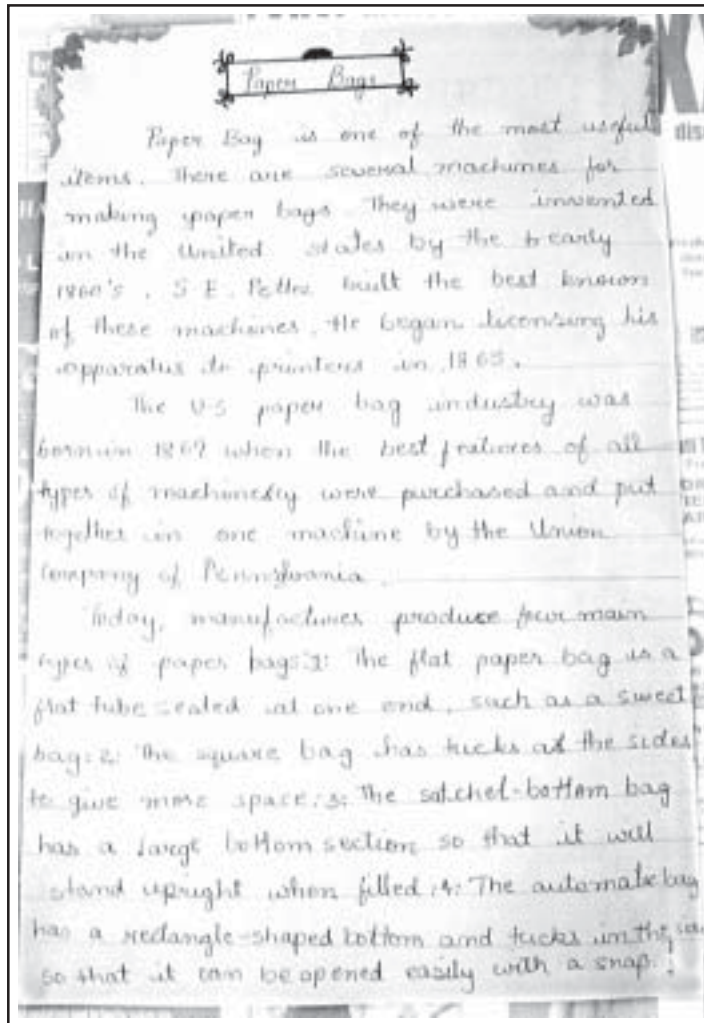 Paper Bags
Paper Bag is one of the most useful
items. There are several machines for
making paper bags. They were invented
in the United states by the early
1860's. S E. Pettee built the best known
of these machines. He began licensing his
apparatus to printers in 1865.
The U.S paper bag industry was
born in 1869 when the best features of all
types of machinery were purchased and put
together in one machine by the Union
Company of Pennsylvania.
Today, manufactures produce four main
types of paper bags:1: The flat paper bag is a
flat tube sealed at one end, such as a sweet
bag:2: The square bag has tucks at the sides
to give more space:3: The satchel-bottom bag
has a large bottom section so that it will
stand upright when filled:4: The automatic bag
has a rectangle-shaped bottom and tucks in the
so that it can be opened easily with a snap.